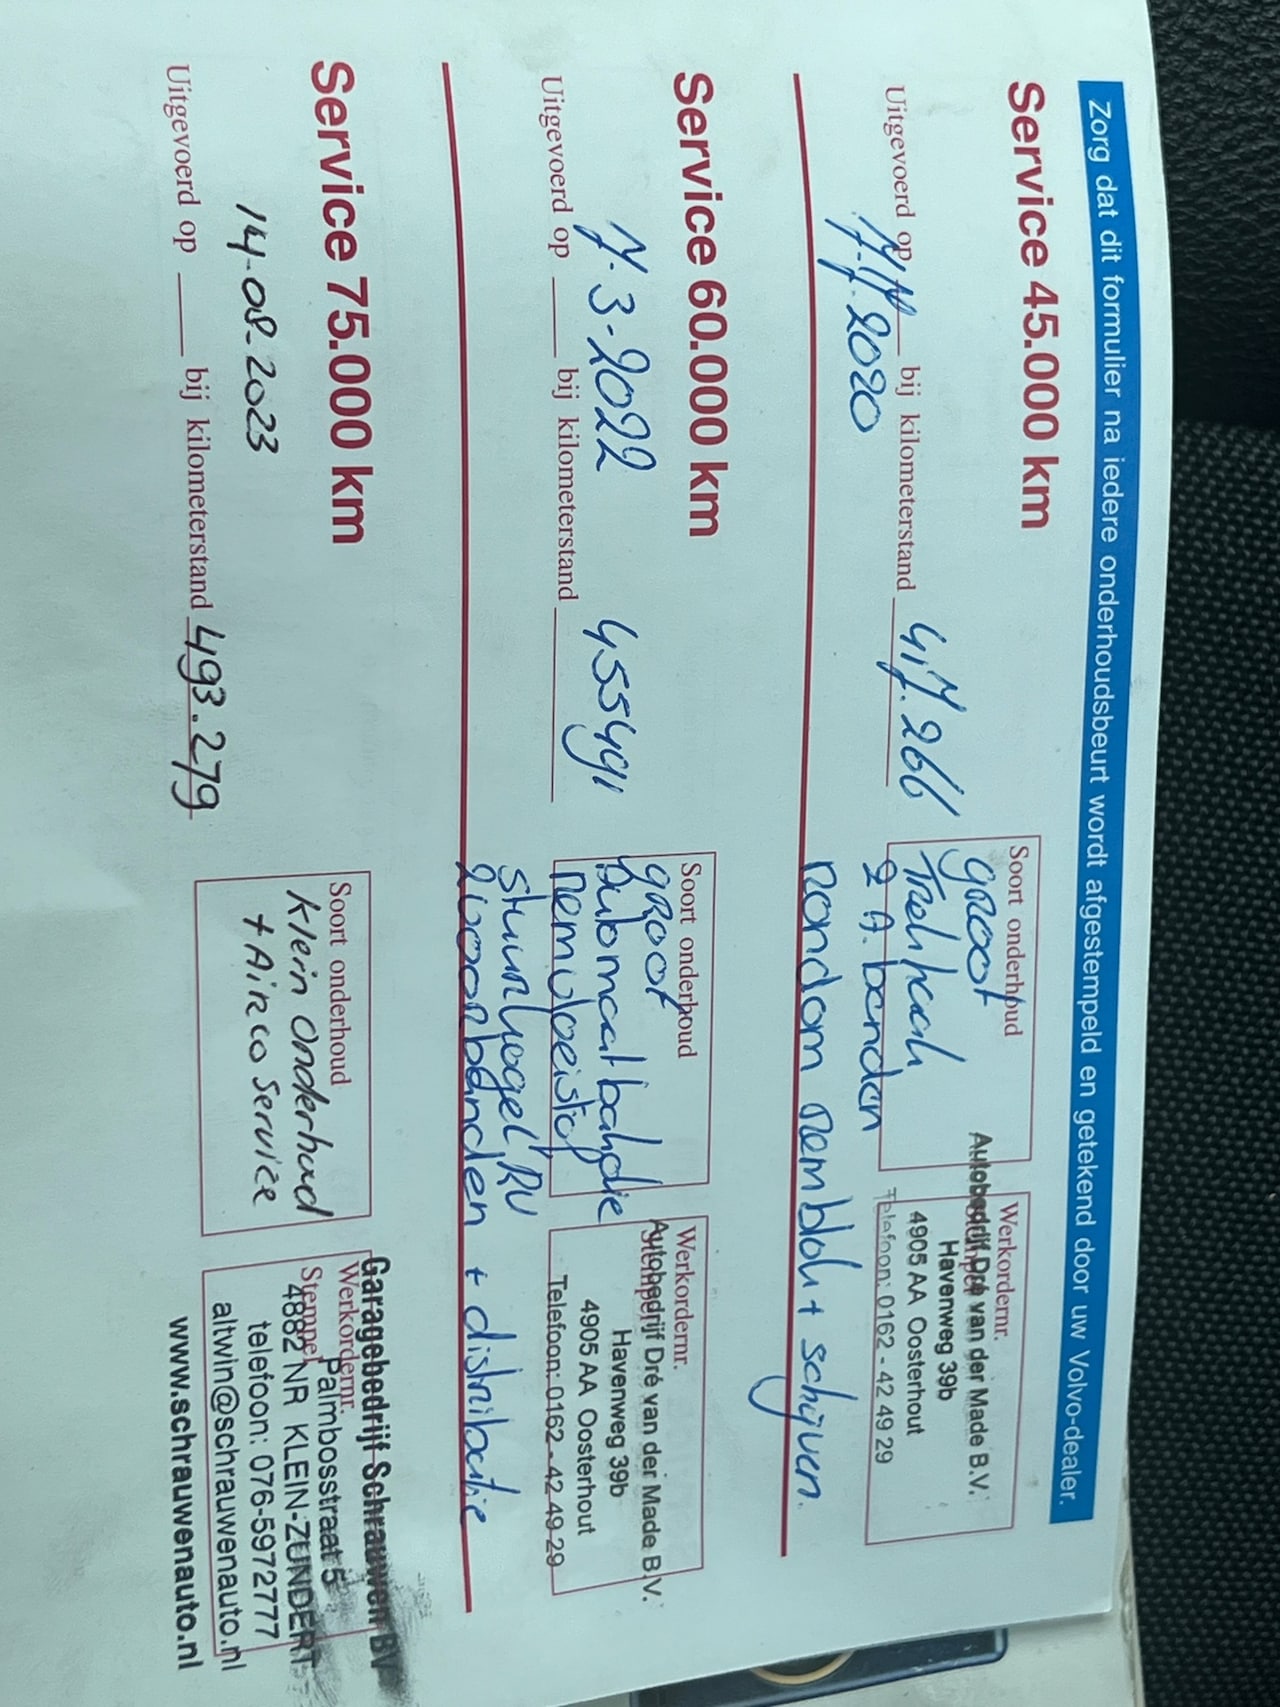 Zorg dat dit formulier na iedere onderhoudsbeurt wordt afgestempeld en getekend door uw Volvo-dealer.
Service 45.000 km
Uitgevoerd op
2020
bij kilometerstand 417.266
Soort onderhoud
groot
Trekhaak
2 A. banden
rondom remblok + schijven.
Werkordernr.
Autobedrijf Dré van der Made B.V.
Havenweg 39b
4905 AA Oosterhout
Telefoon: 0162 - 42 49 29
Service 60.000 km
Uitgevoerd op
7.3-2022
bij kilometerstand
455491
Soort onderhoud
groot
automaatbakolie
remvloeistof
stuurkogel RV
2 voorbanden + distributie
Werkordernr.
Stempel
Autobedrijf Dré van der Made B.V.
Havenweg 39b
4905 AA Oosterhout
Telefoon: 0162 - 42 49 29
Service 75.000 km
14-08-2023
Uitgevoerd op
bij kilometerstand 493.279
Soort onderhoud
klein onderhoud
+ Airco Service
Werkordernr.
Stempel
Garagebedrijf Schrauwen BV
Palmbosstraat 5
4882 NR KLEIN-ZUNDERT
telefoon: 076-5972777
altwin@schrauwenauto.nl
www.schrauwenauto.nl